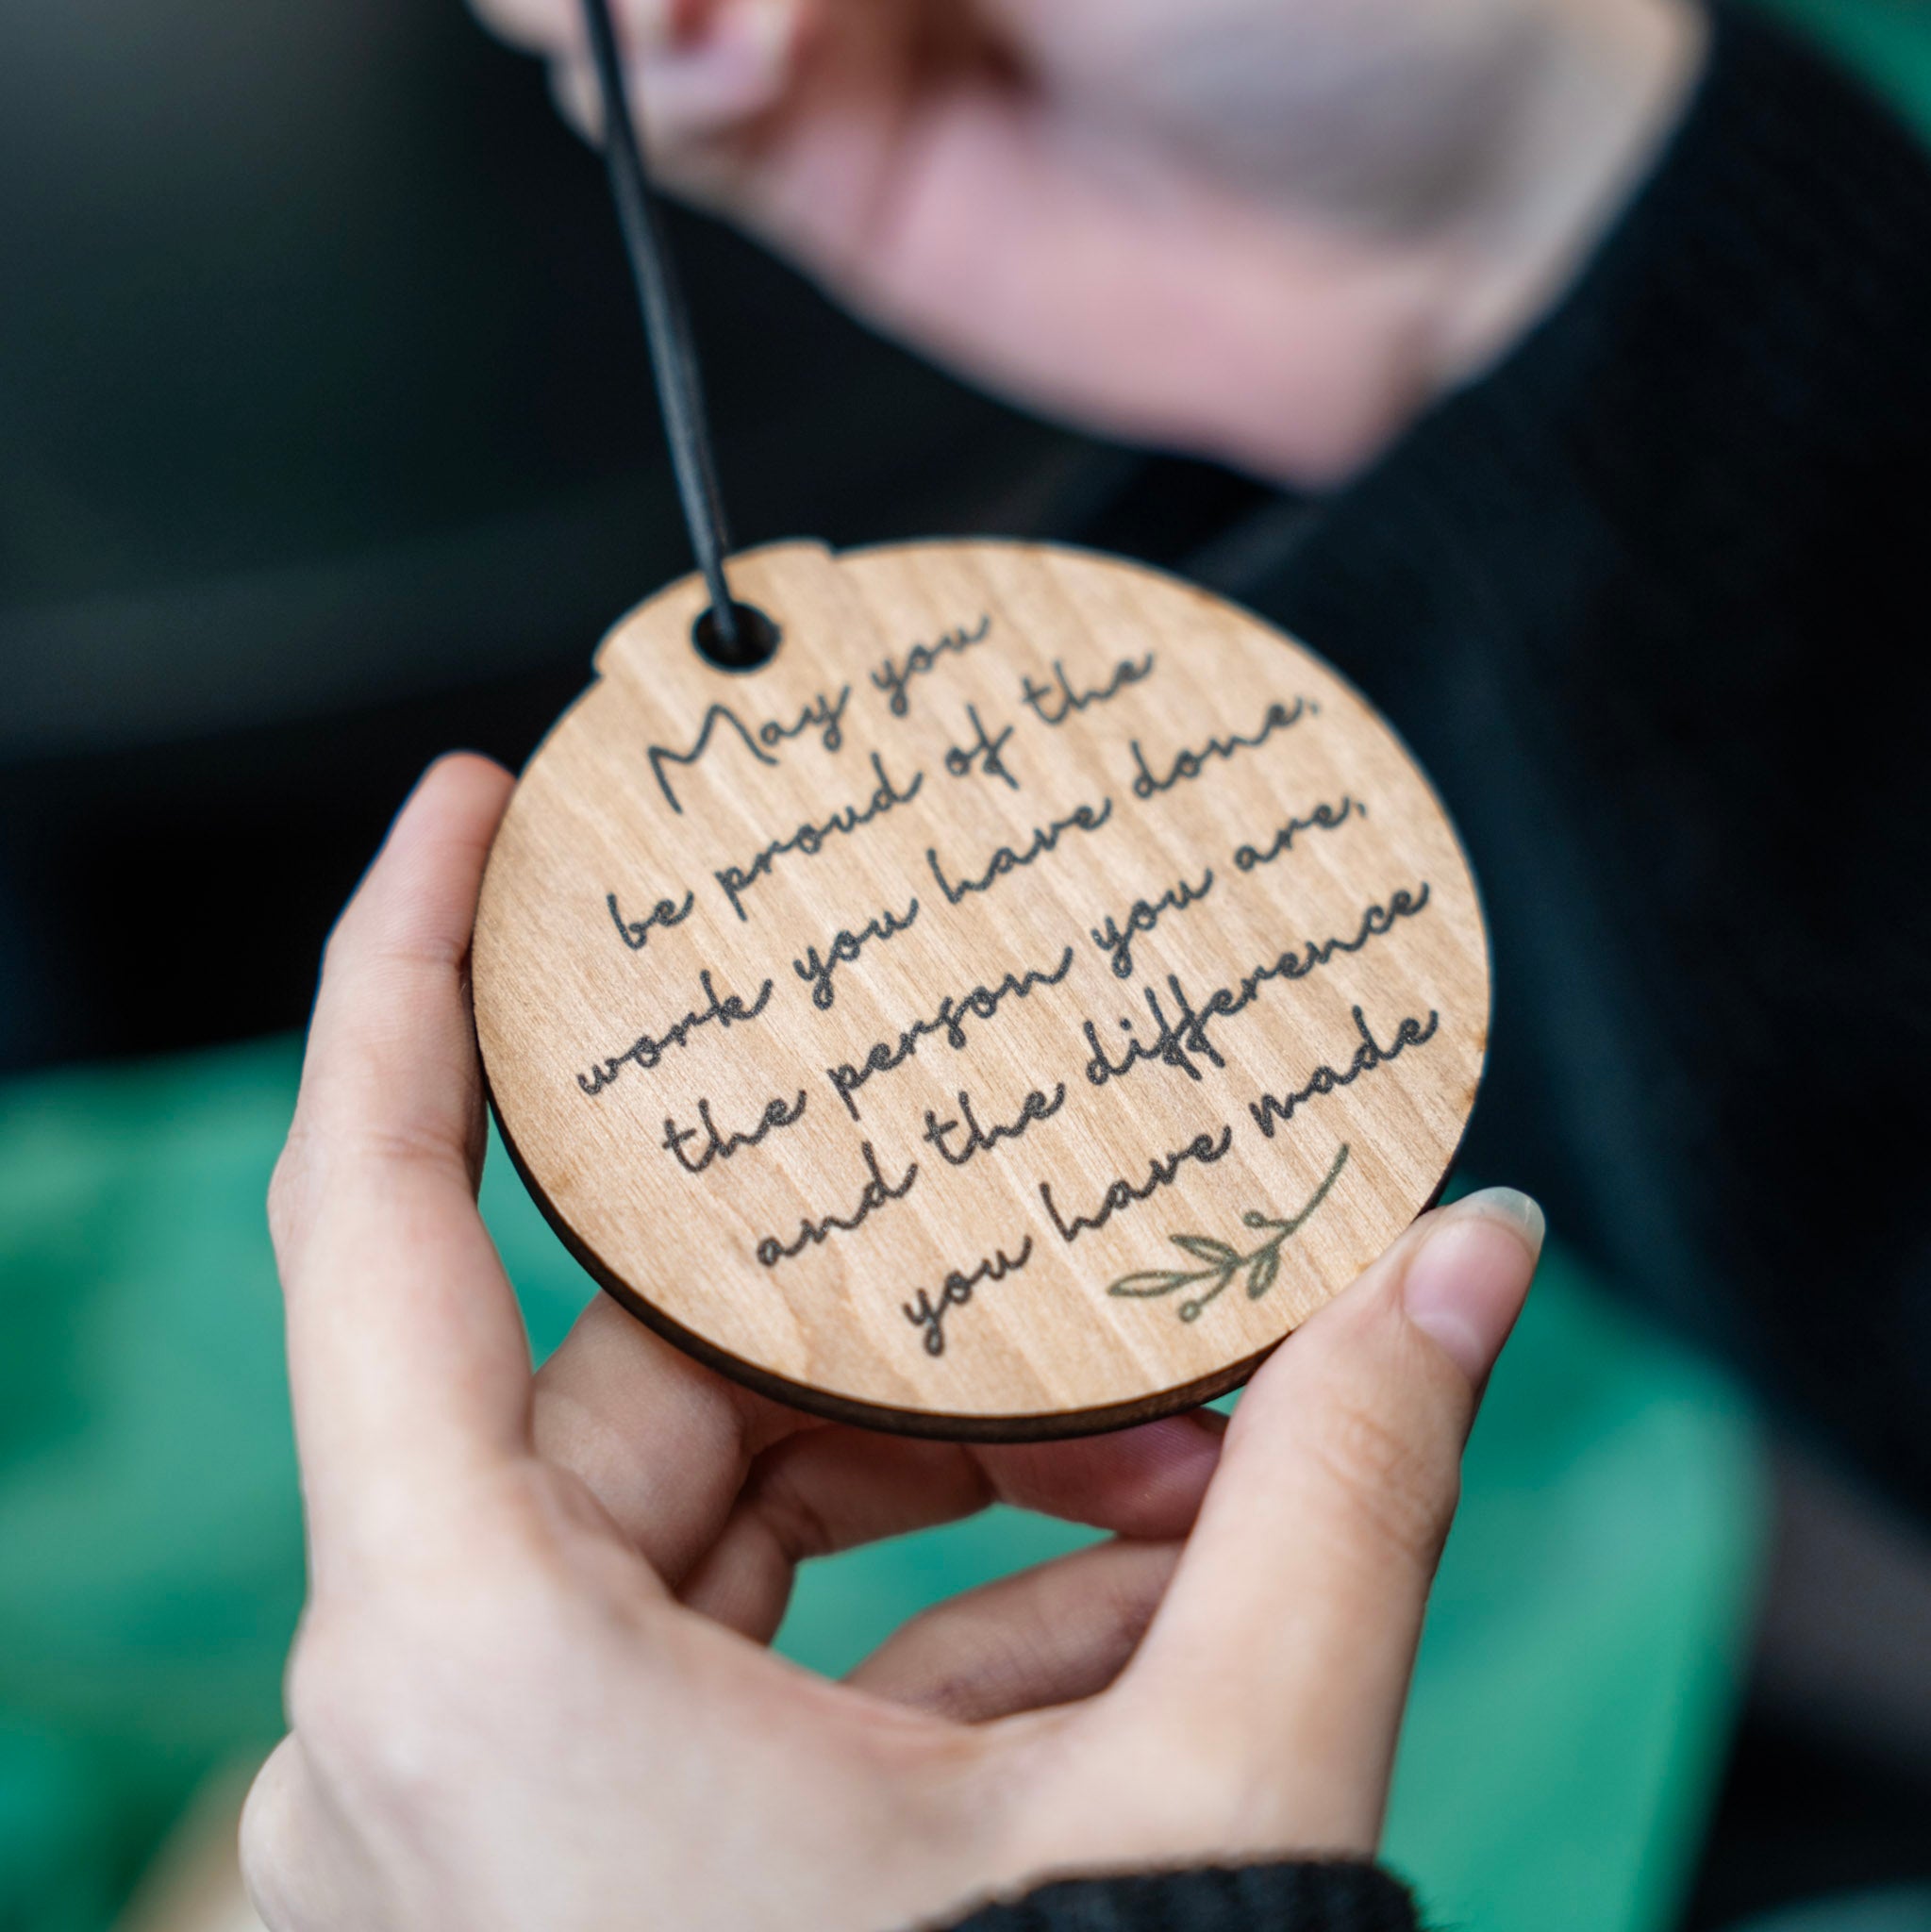 May you
be proud of the
work you have done,
the person you are,
and the difference
you have made